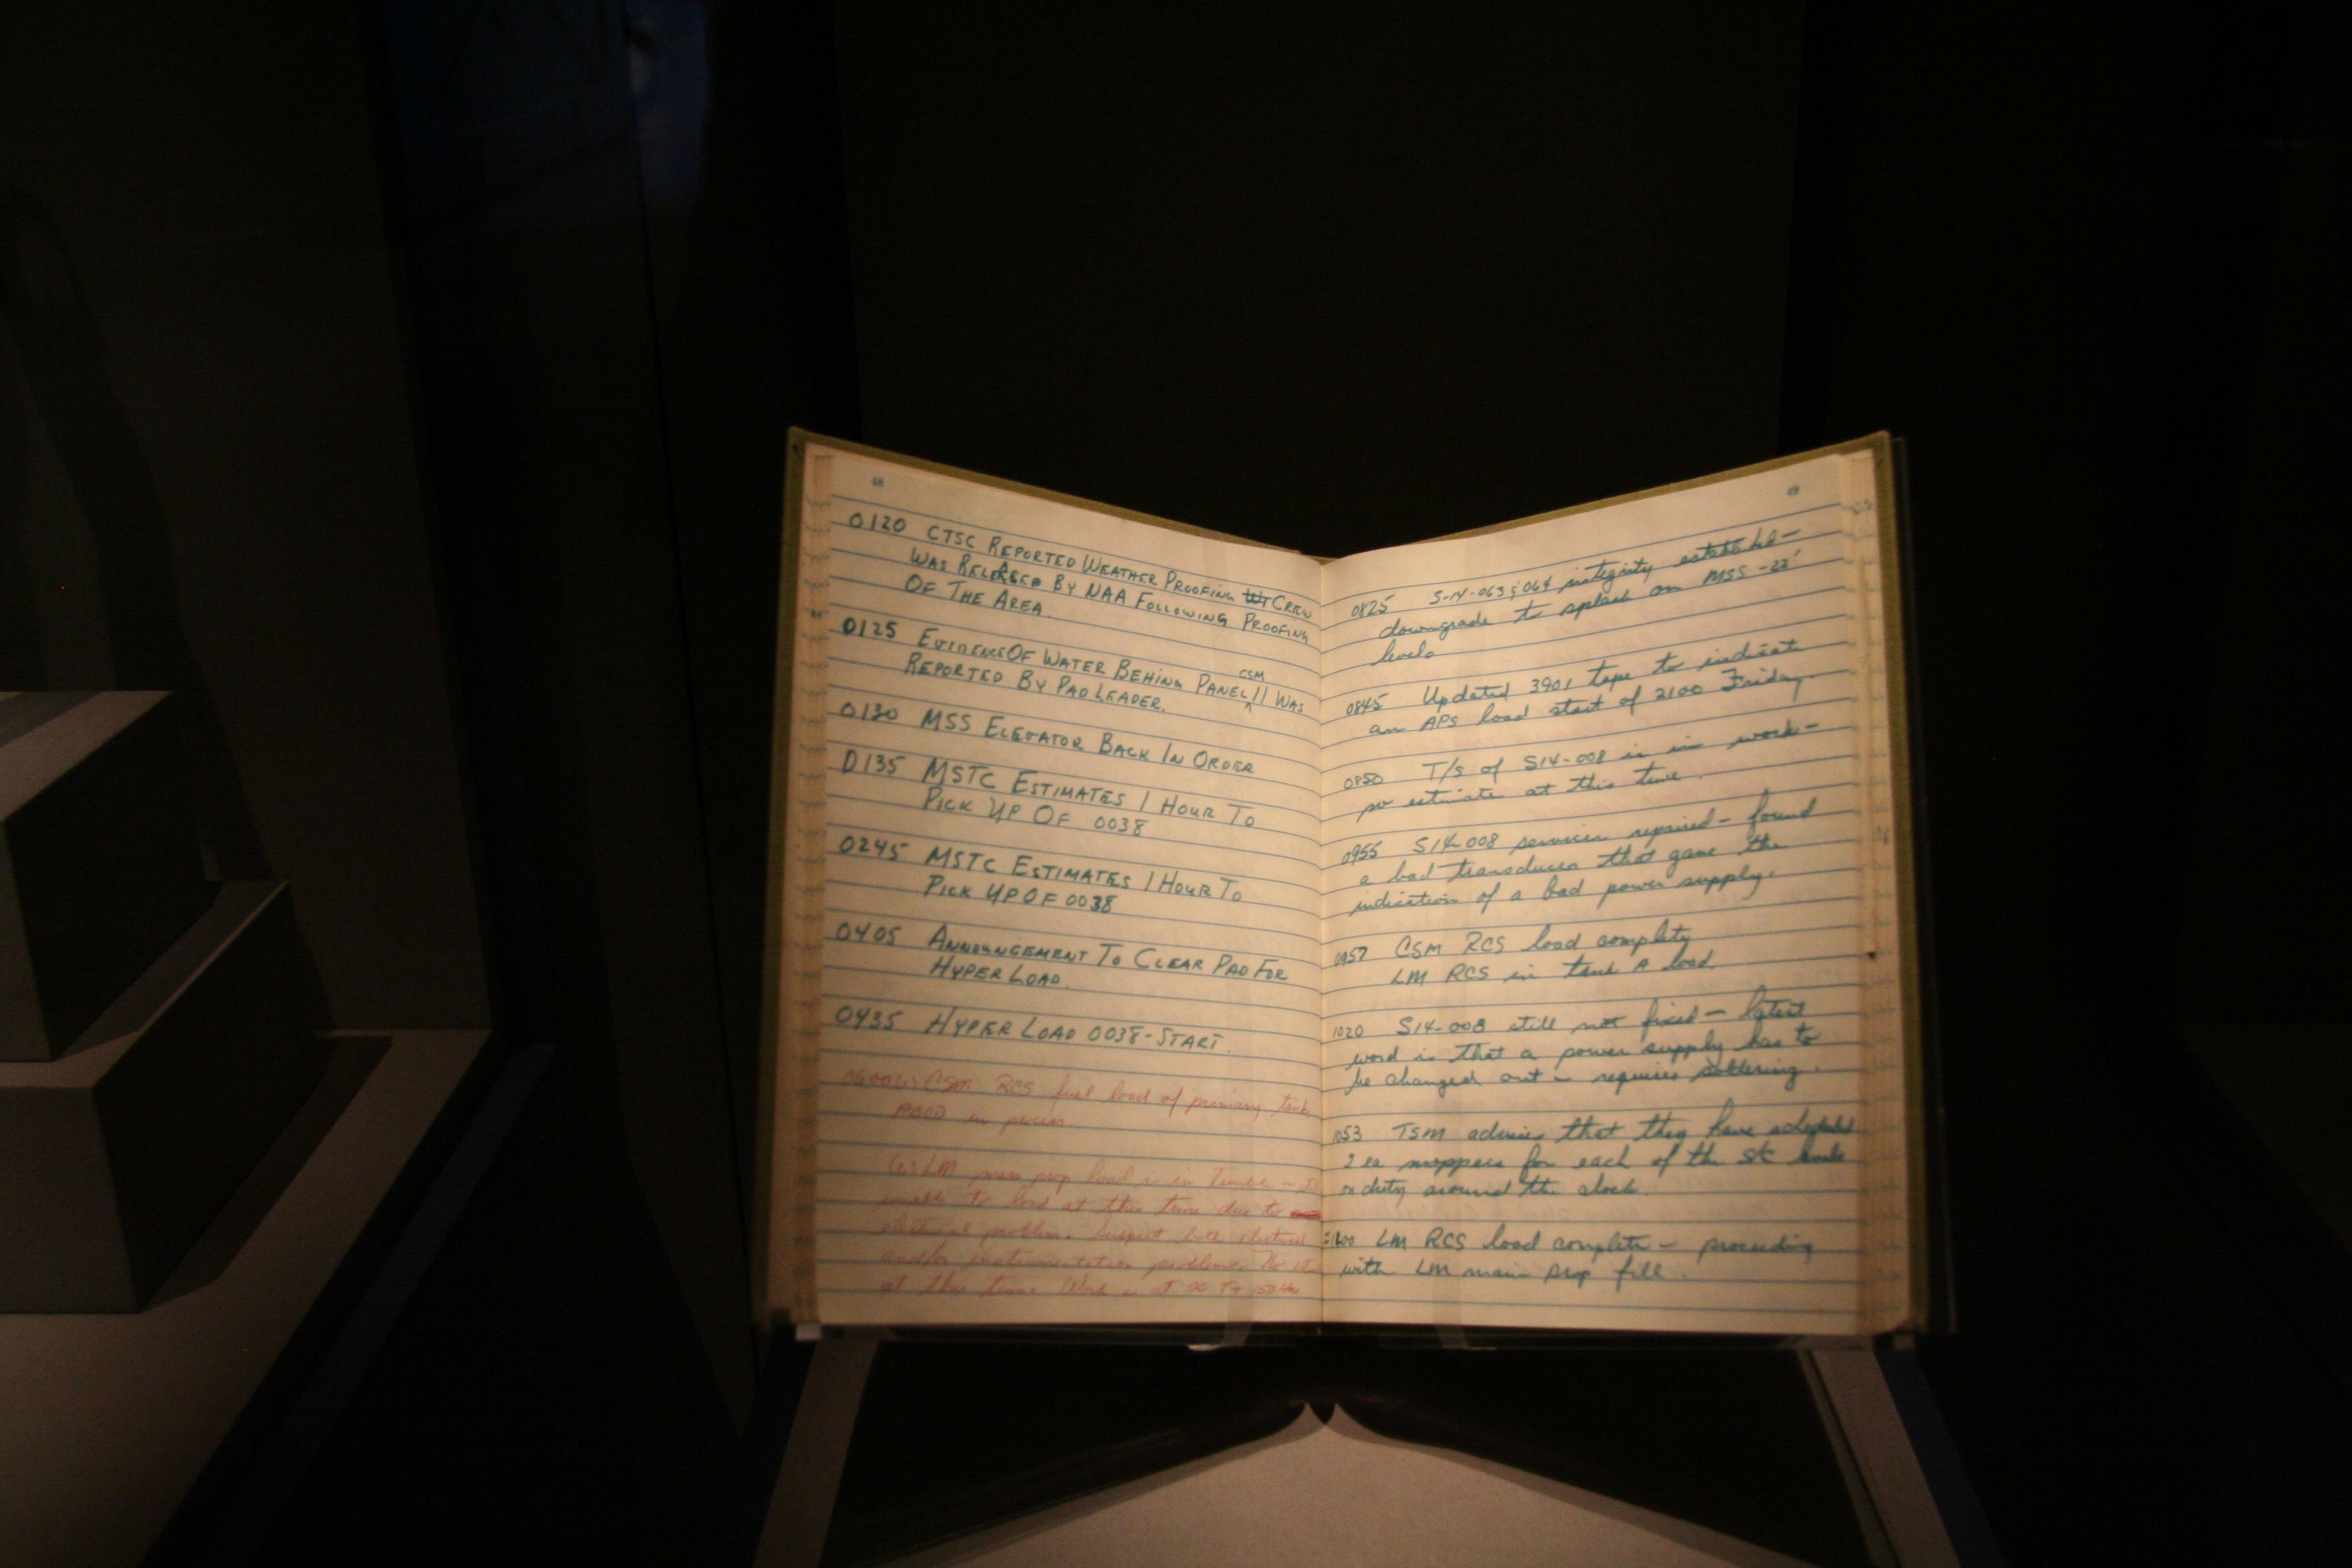 48
0120 CTSC REPORTED WEATHER PROOFING CREW
WAS RELEASED BY NAA FOLLOWING PROOFING
OF THE AREA.
0125 EVIDENCE OF WATER BEHING PANEL CSM 11 WAS
REPORTED BY PAD LEADER.
0130 MSS ELEVATOR BACK IN ORDER
0135 MSTC ESTIMATES 1 HOUR TO
PICK UP OF 0038
0245 MSTC ESTIMATES 1 HOUR TO
PICK UP OF 0038
0405 ANNOUNCEMENT TO CLEAR PAD FOR
HYPER LOAD.
0435 HYPER LOAD 0038-START.
CSM RCS fuel load of primary tank
ABCD in
LM prop load is in trouble -
unable to load at this time due to
electrical problem. Suspect both electrical
and/or instrumentation problem. No
at this time. Work is at
49
0825 S-14-063 & 064 integrity established -
downgrade to splash on MSS -22'
level.
0845 Updated 3901 tape to indicate
an APS load start of 2100 Friday.
0850 T/S of S14-008 is in work -
no estimate at this time.
0955 S14-008 services repaired - found
a bad transducer that gave the
indication of a bad power supply.
0957 CSM RCS load complete
LM RCS in tank A load.
1020 S14-008 still not fixed - latest
word is that a power supply has to
be changed out - requires soldering.
1053 TSM advises that they have scheduled
2 ea moppers for each of the S/C levels
on duty around the clock.
LM RCS load complete - proceeding
with LM main prop fill.